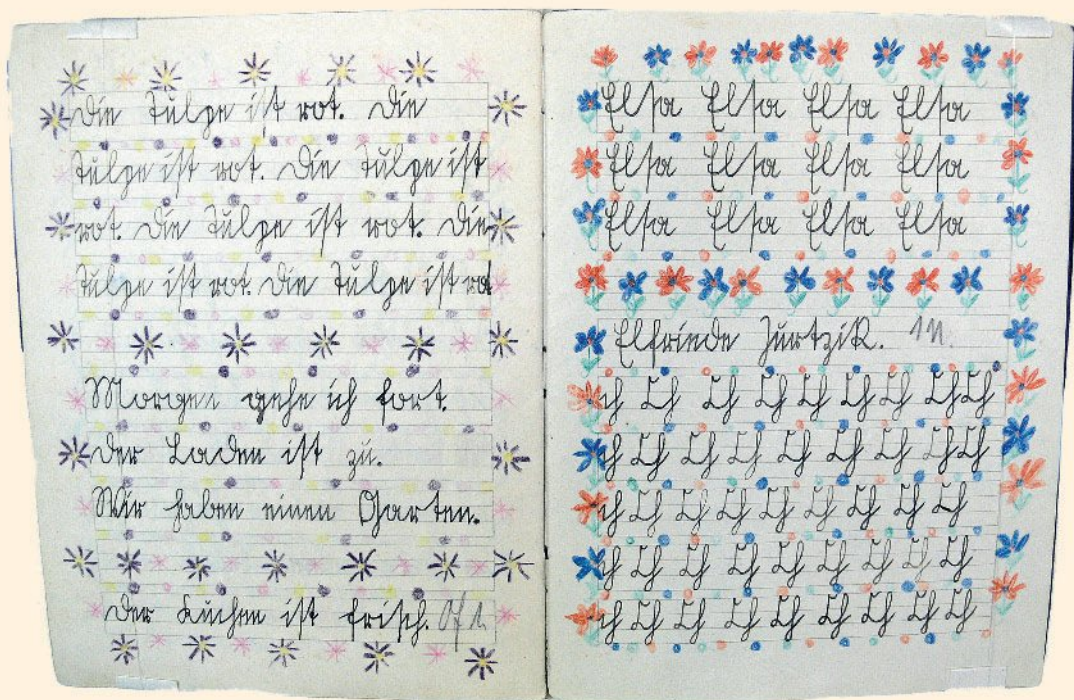 Die Tulpe ist rot. Die
Tulpe ist rot. Die Tulpe ist
rot. Die Tulpe ist rot. Die
Tulpe ist rot. Die Tulpe ist rot
Morgen gehe ich fort.
Der Laden ist zu.
Wir haben einen Garten.
Der Kuchen ist frisch.
Elsa Elsa Elsa Elsa
Elsa Elsa Elsa Elsa
Elsa Elsa Elsa Elsa
Elfriede Jurtzik.
Ch Ch Ch Ch Ch Ch Ch Ch Ch
Ch Ch Ch Ch Ch Ch Ch Ch Ch
Ch Ch Ch Ch Ch Ch Ch Ch Ch
Ch Ch Ch Ch Ch Ch Ch Ch Ch
Ch Ch Ch Ch Ch Ch Ch Ch Ch